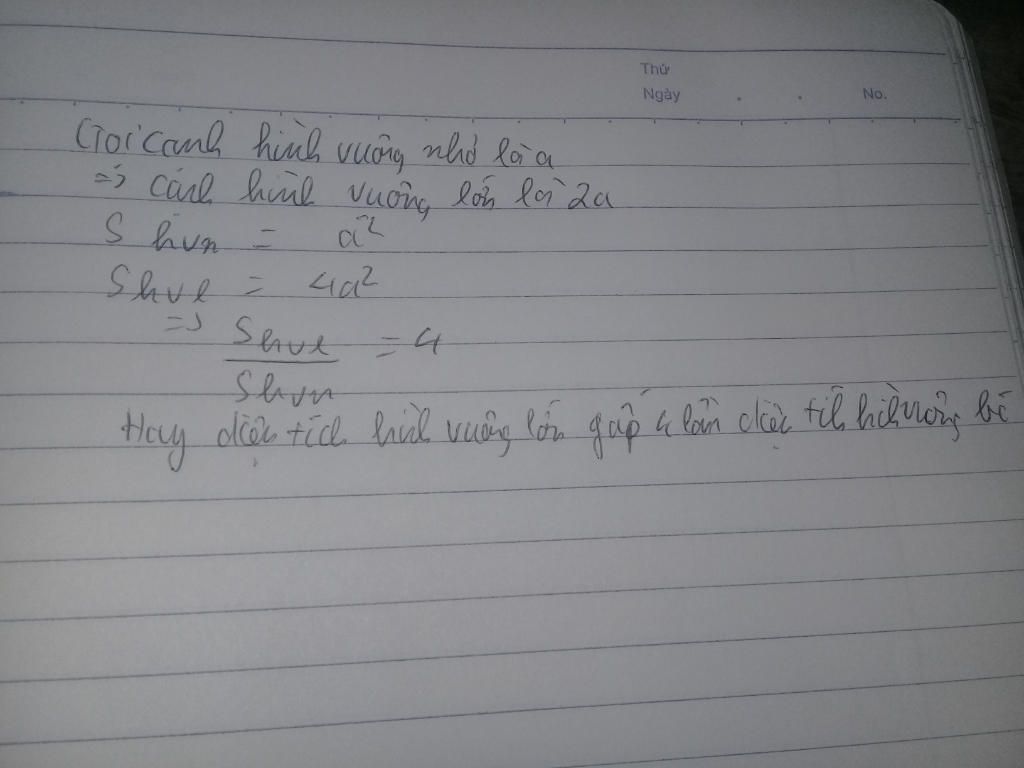 Thứ
Ngày . . No.
Gọi cạnh hình vuông nhỏ là a
=> cạnh hình vuông lớn là 2a
S hvn = a²
Shvl = 4a²
=> Shvl / Shvn = 4
Hay diện tích hình vuông lớn gấp 4 lần diện tích hình vuông bé